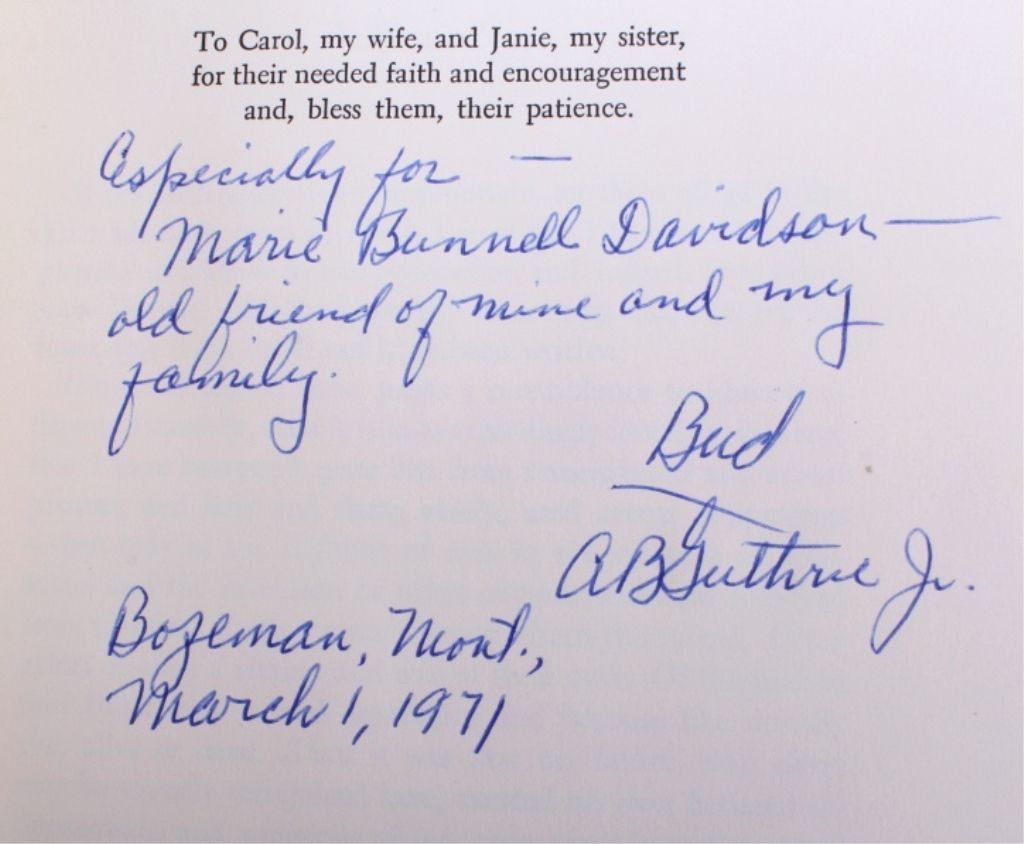 To Carol, my wife, and Janie, my sister,
for their needed faith and encouragement
and, bless them, their patience.
Especially for —
Marie Bunnell Davidson —
old friend of mine and my
family.
Bud
AB Guthrie Jr.
Bozeman, Mont.,
March 1, 1971